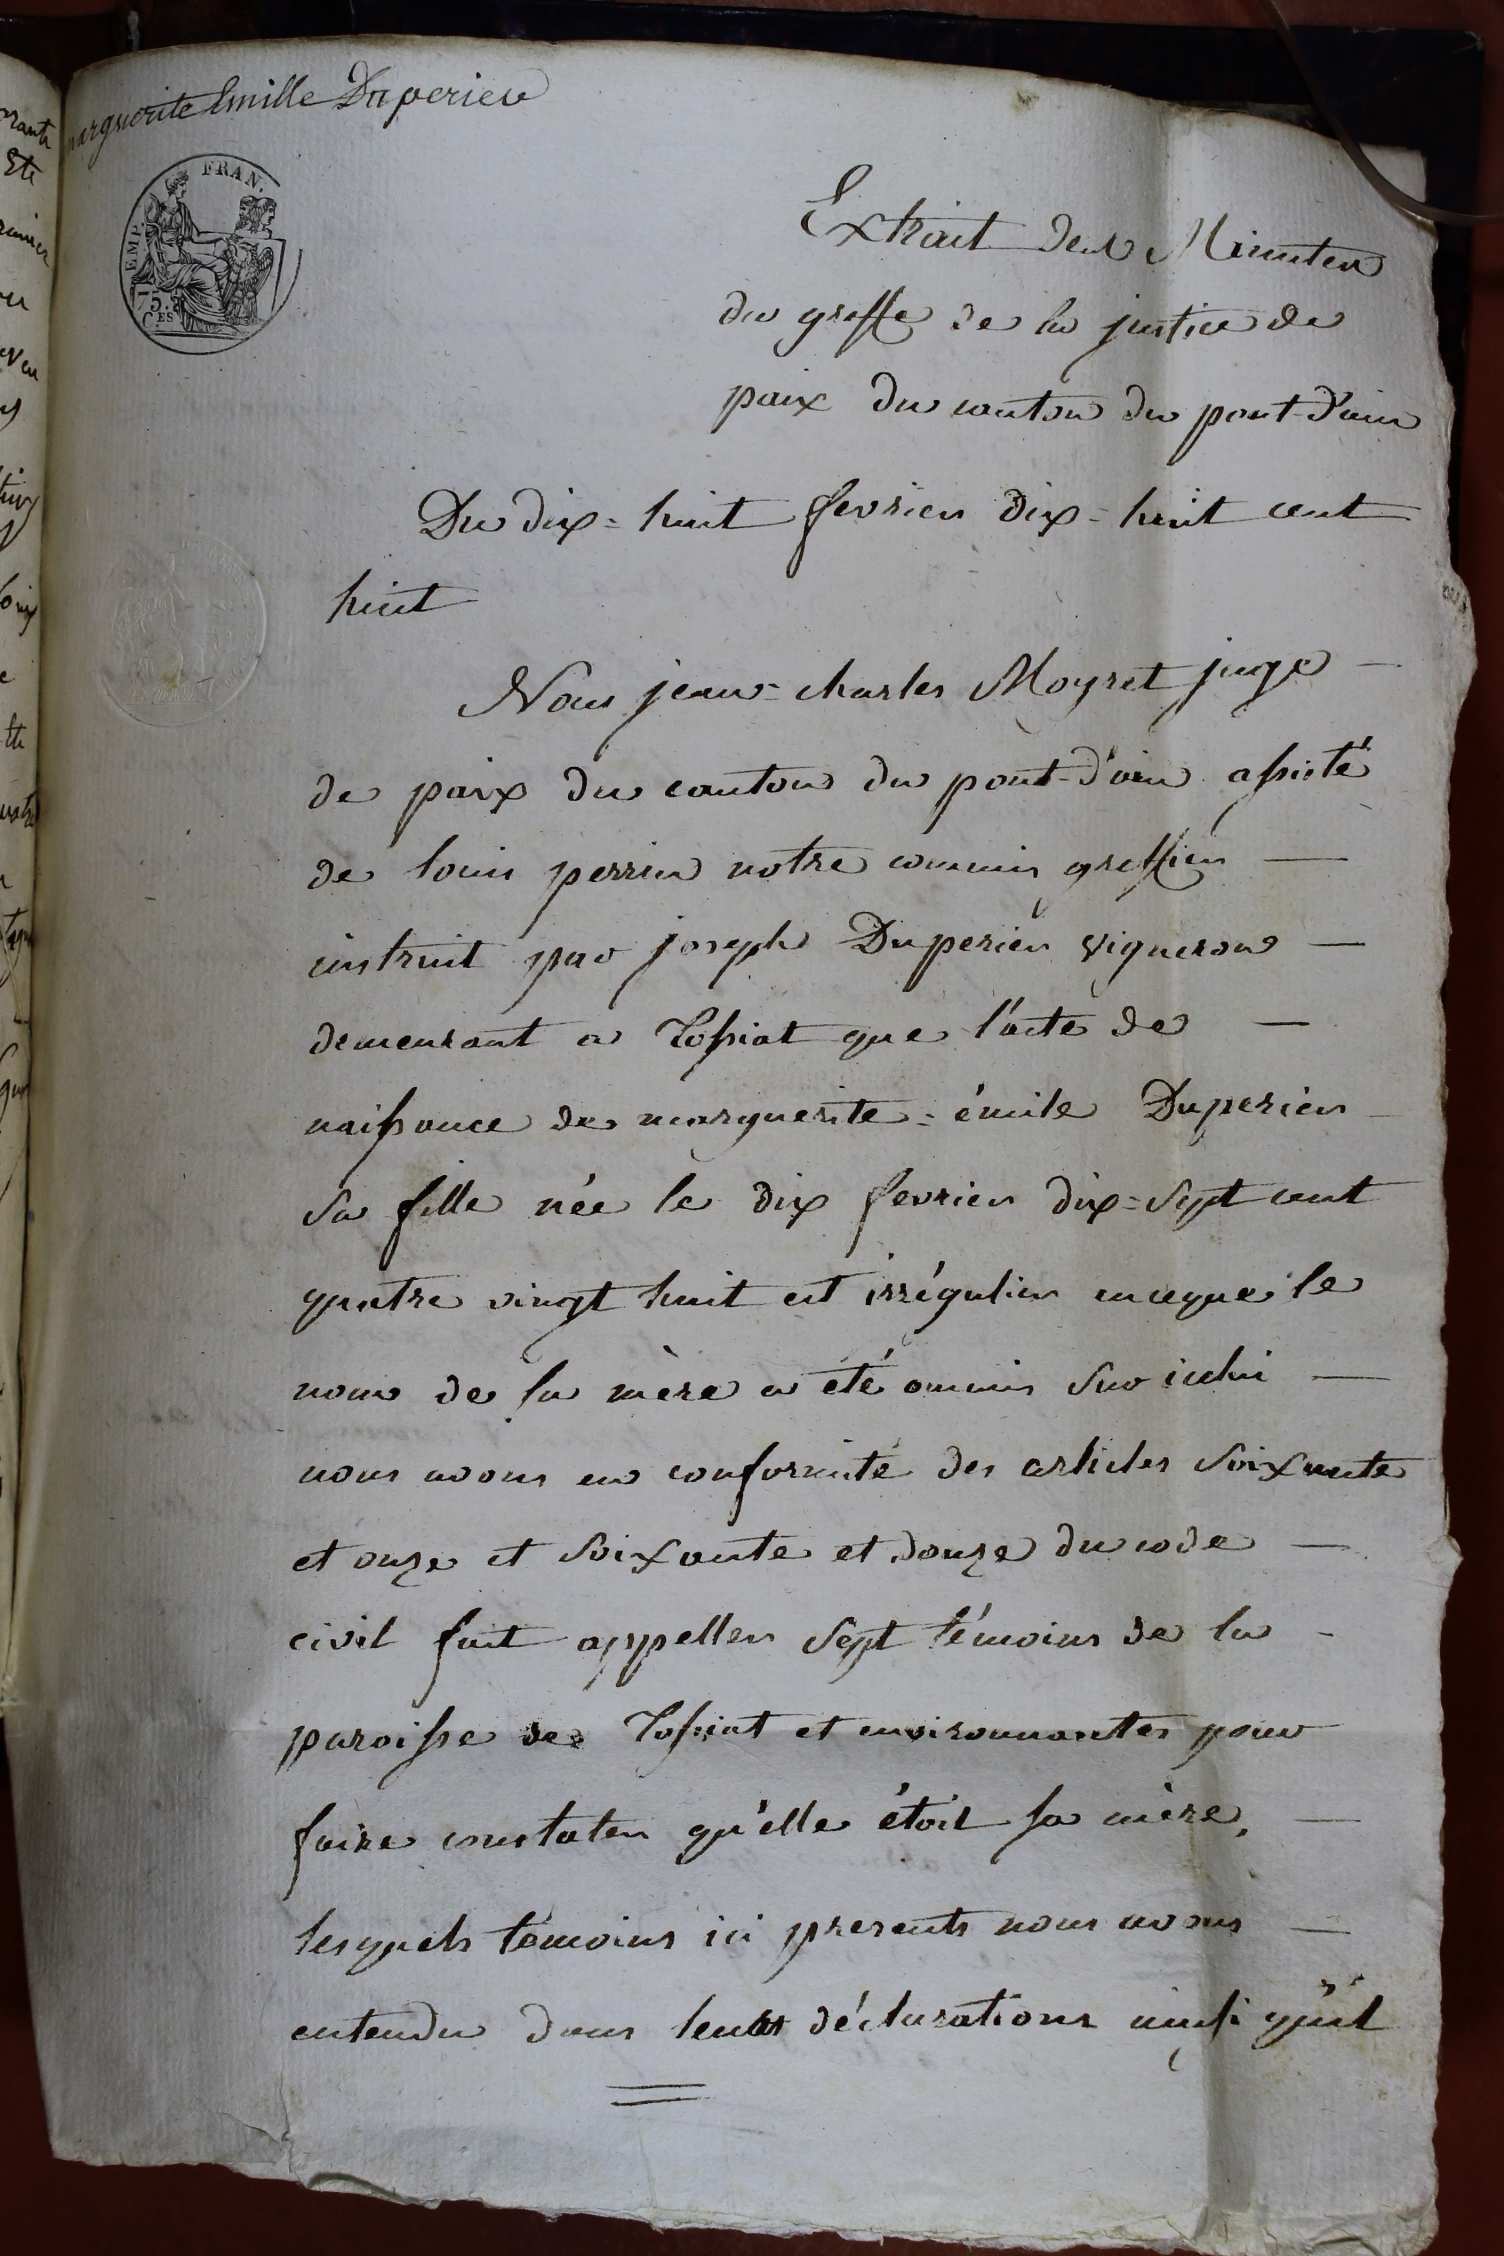 marguerite Emille Duperier
EMP. FRAN.
75.
CES
Extrait des Minutes
du greffe de la justice de
paix du canton du pont-d'ain
Du dix=huit fevrier dix=huit cent
huit
Nous jean=charles Moyret juge
de paix du canton du pont-d'ain assisté
de louis perrin notre commis greffier
instruit par joseph Duperier vigneron
demeurant a Tossiat que l'acte de
naissance de marguerite=émile Duperier
sa fille née le dix fevrier dix=sept cent
quatre vingt huit est irrégulier en ce que le
nom de la mère a été ommis sur icelui
nous avons en conformité des articles soixante
et onze et soixante et douze du code
civil fait appeller sept témoins de la
paroisse de Tossiat et environnantes pour
faire constater qu'elle étoit sa mère,
lesquels témoins ici presents nous avons
entendu dans leurs déclarations ainsi qu'il